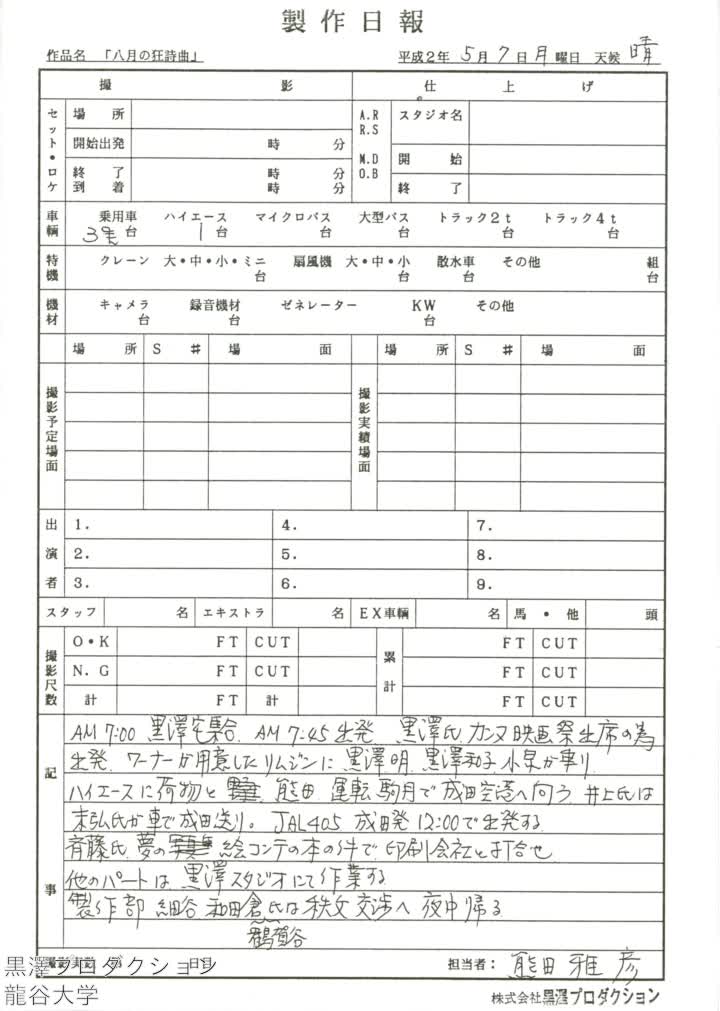 製作日報
作品名 「八月の狂詩曲」 平成2年 5月 7日 月曜日 天候 晴
撮 影 仕 上 げ
セット・ロケ 場 所 A.R R.S M.D O.B スタジオ名
開始出発 時 分 開 始
終 了 時 分 終 了
到 着 時 分
車輌 乗用車 ハイエース マイクロバス 大型バス トラック2t トラック4t
3 台 1 台 台 台 台 台
特機 クレーン 大・中・小・ミニ 扇風機 大・中・小 散水車 その他 組
台 台 台 台
機材 キャメラ 録音機材 ゼネレーター KW その他
台 台 台
場 所 S # 場 面 場 所 S # 場 面
撮影予定場面 撮影実績場面
出演者 1. 4. 7.
2. 5. 8.
3. 6. 9.
スタッフ 名 エキストラ 名 EX車輌 名 馬・他 頭
撮影尺数 O・K FT CUT 累計 FT CUT
N.G FT CUT FT CUT
計 FT 計 FT CUT
記事
AM 7:00 黒澤宅集合. AM 7:45 出発 黒澤氏 カンヌ映画祭出席の為
出発 ワーナーが用意したリムジンに 黒澤明 黒澤和子 小泉が乗り
ハイエースに荷物と 熊田 運転 駒月で成田空港へ向う 井上氏は
末弘氏が車で成田送り。JAL405 成田発 12:00で出発する
斉藤氏 夢の 絵コンテの本の件で 印刷会社と打合せ
他のパートは 黒澤スタジオにて作業する
製作部 細谷 和田倉氏は秩父交渉へ 夜中帰る
鶴賀谷
撮影実数 第 日目 担当者： 熊田 雅彦
株式会社黒澤プロダクション
黒澤プロダクション
龍谷大学